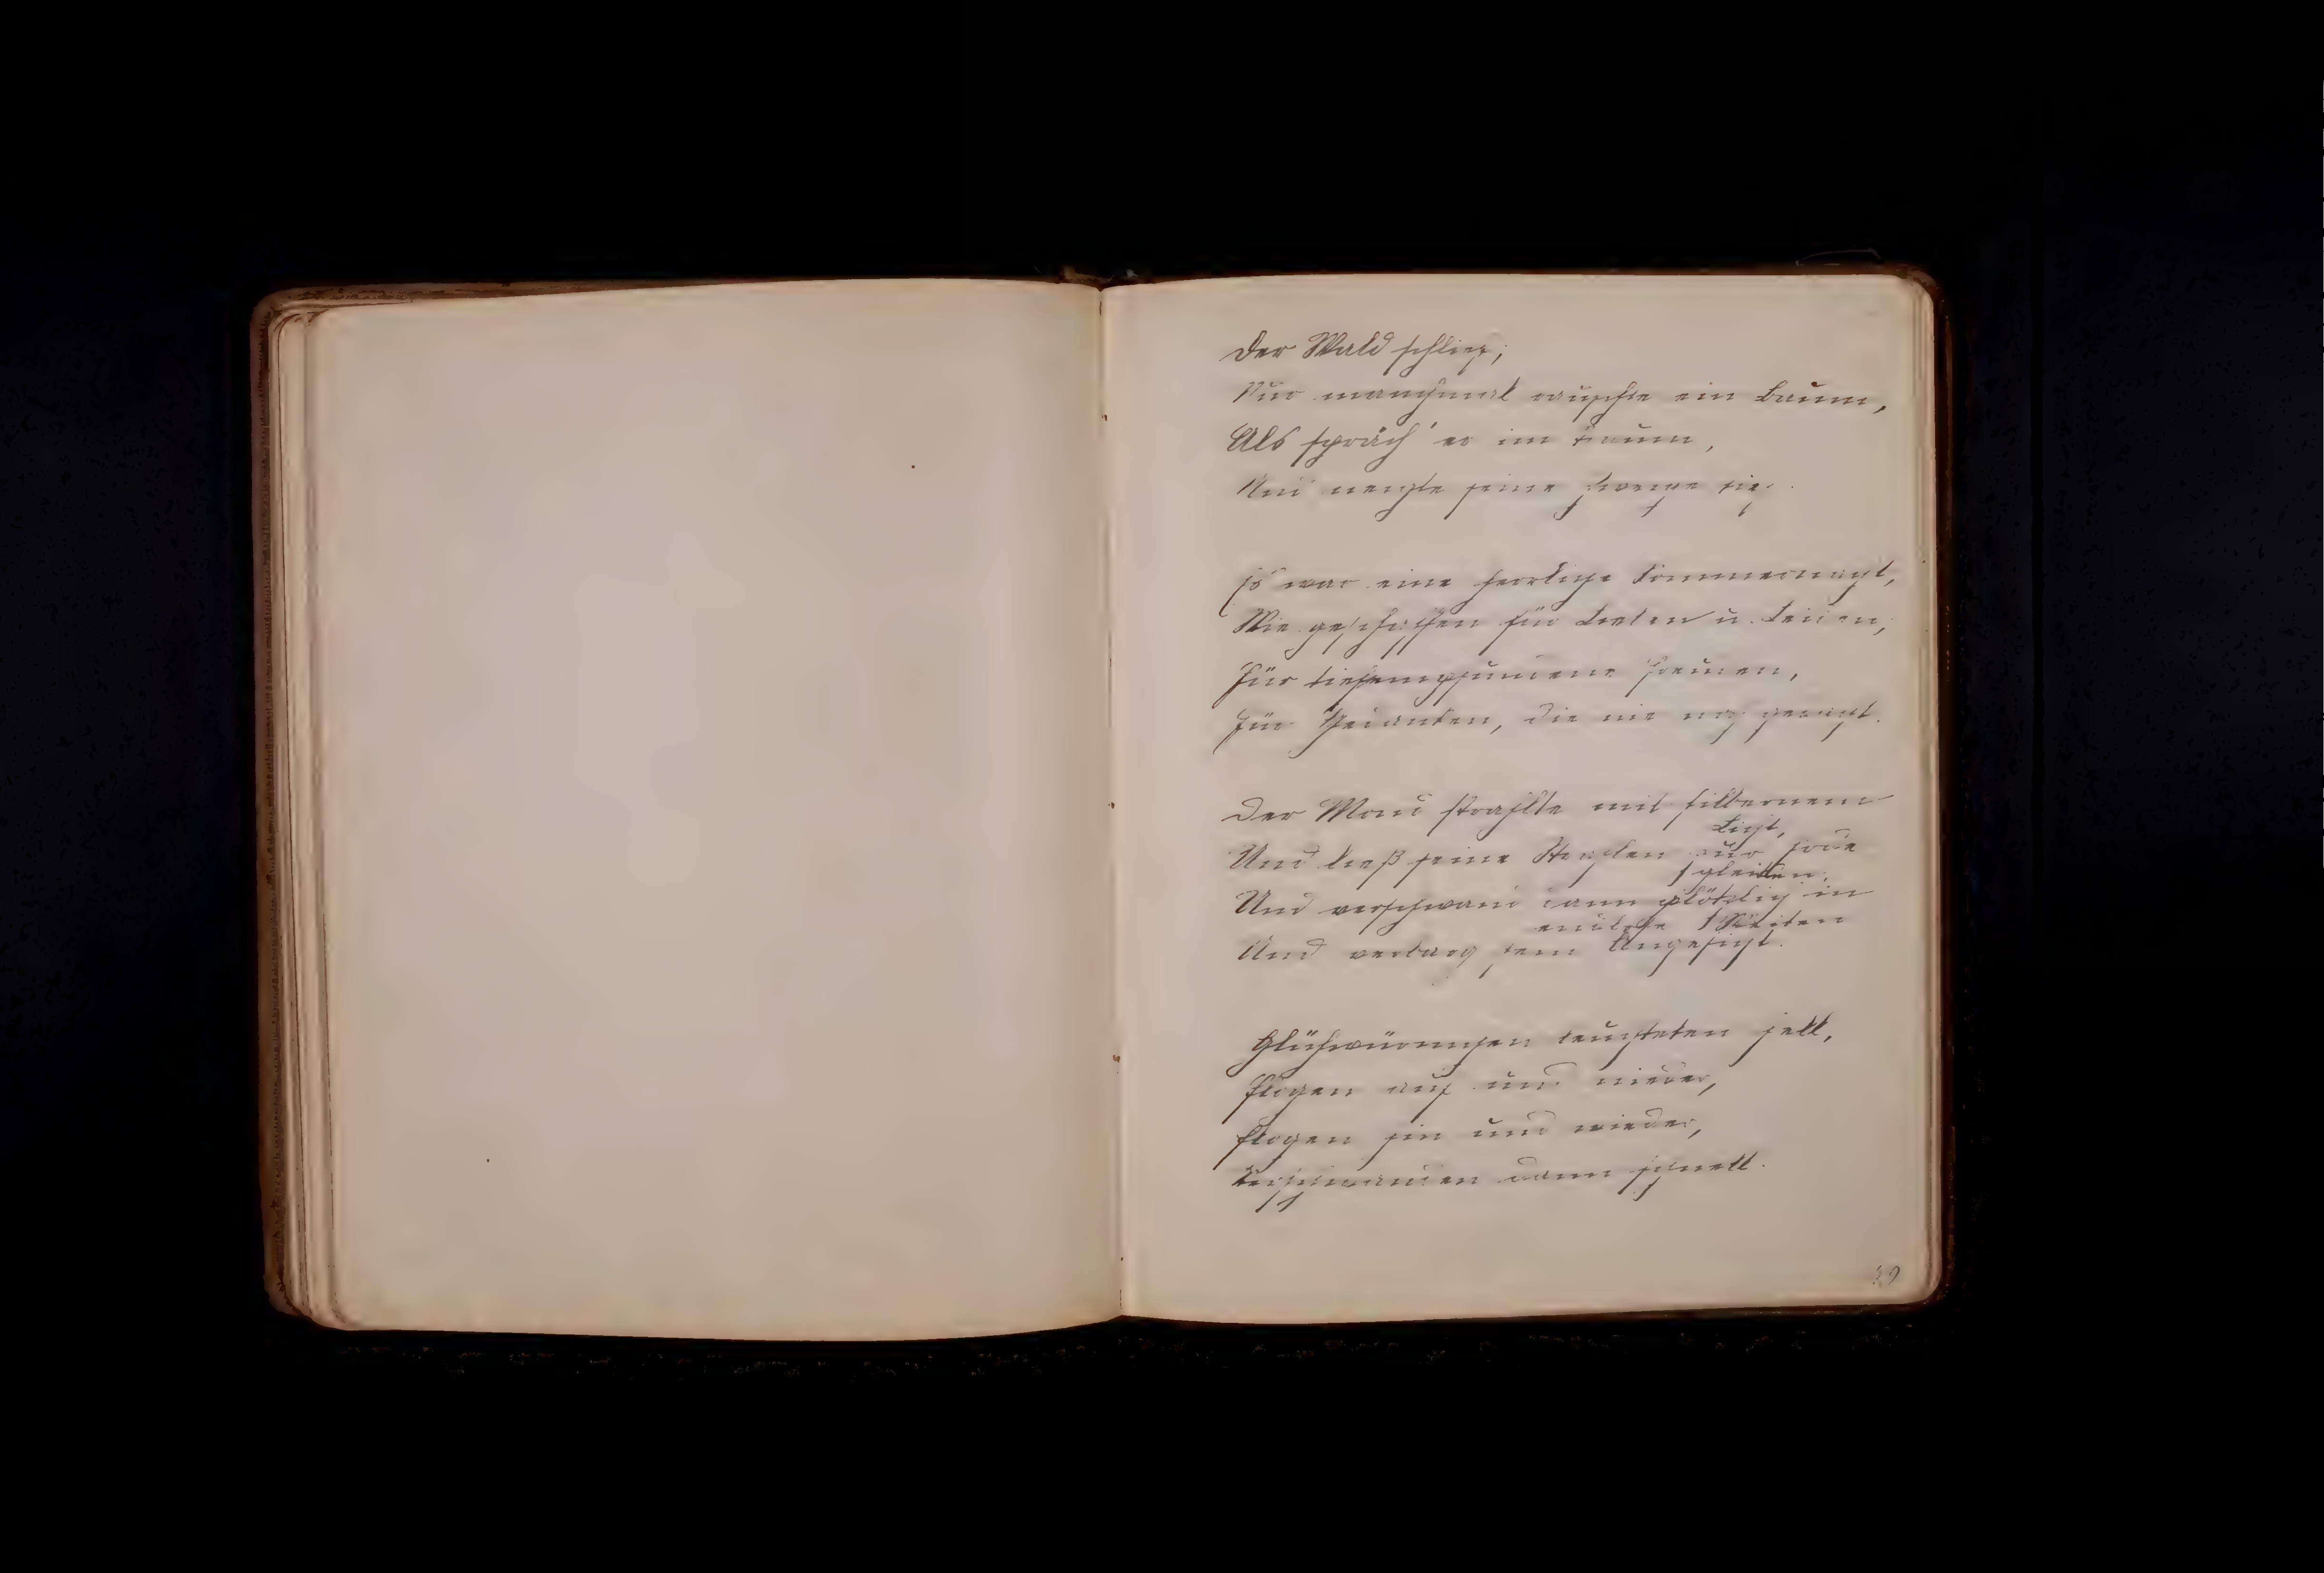 Der Wald schlief;
Nur manchmal rauschte ein Baum,
Als spräch' er im Traum,
Und neigte seine Zweige tief.
Es war eine herrliche Sommernacht,
Wie geschaffen für Lieben u. Leiden,
Für tiefempfundene Freuden,
Für Gedanken, die nie noch gedacht.
Der Mond strahlte mit silbernem
Licht,
Und ließ seine Strahlen zur Erde
gleiten,
Und verschwand dann plötzlich in
endlose Weiten
Und verbarg sein Angesicht.
Glühwürmchen leuchteten hell,
Flogen auf und nieder,
Flogen hin und wieder,
Verschwanden dann schnell.